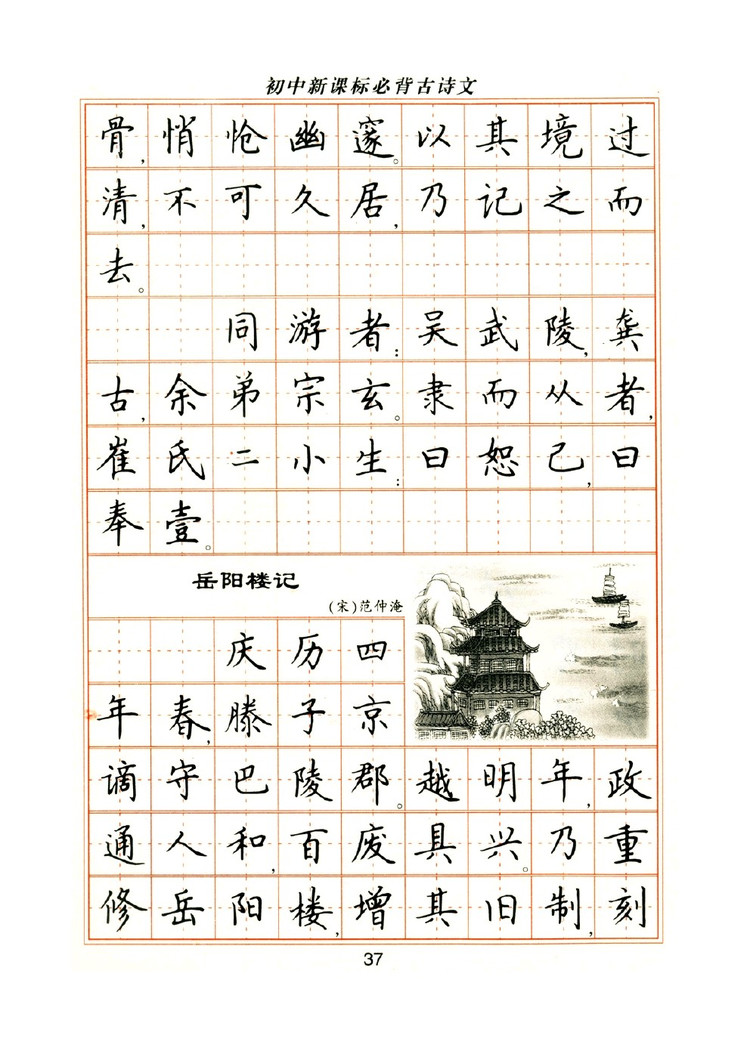 初中新课标必背古诗文
骨，悄怆幽邃。以其境过
清，不可久居，乃记之而
去。
同游者：吴武陵，龚
古，余弟宗玄。隶而从者，
崔氏二小生：曰恕己，曰
奉壹。
岳阳楼记
(宋)范仲淹
庆历四
年春，滕子京
谪守巴陵郡。越明年，政
通人和，百废具兴。乃重
修岳阳楼，增其旧制，刻
37